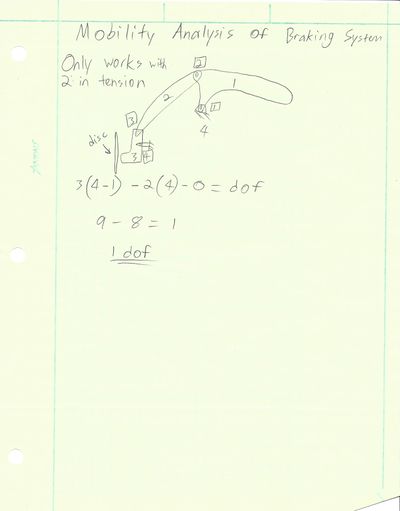 Mobility Analysis of Braking System
Only works with
2 in tension
2
1
2
1
3
4
disc
3
4
3(4-1) - 2(4) - 0 = dof
9 - 8 = 1
1 dof